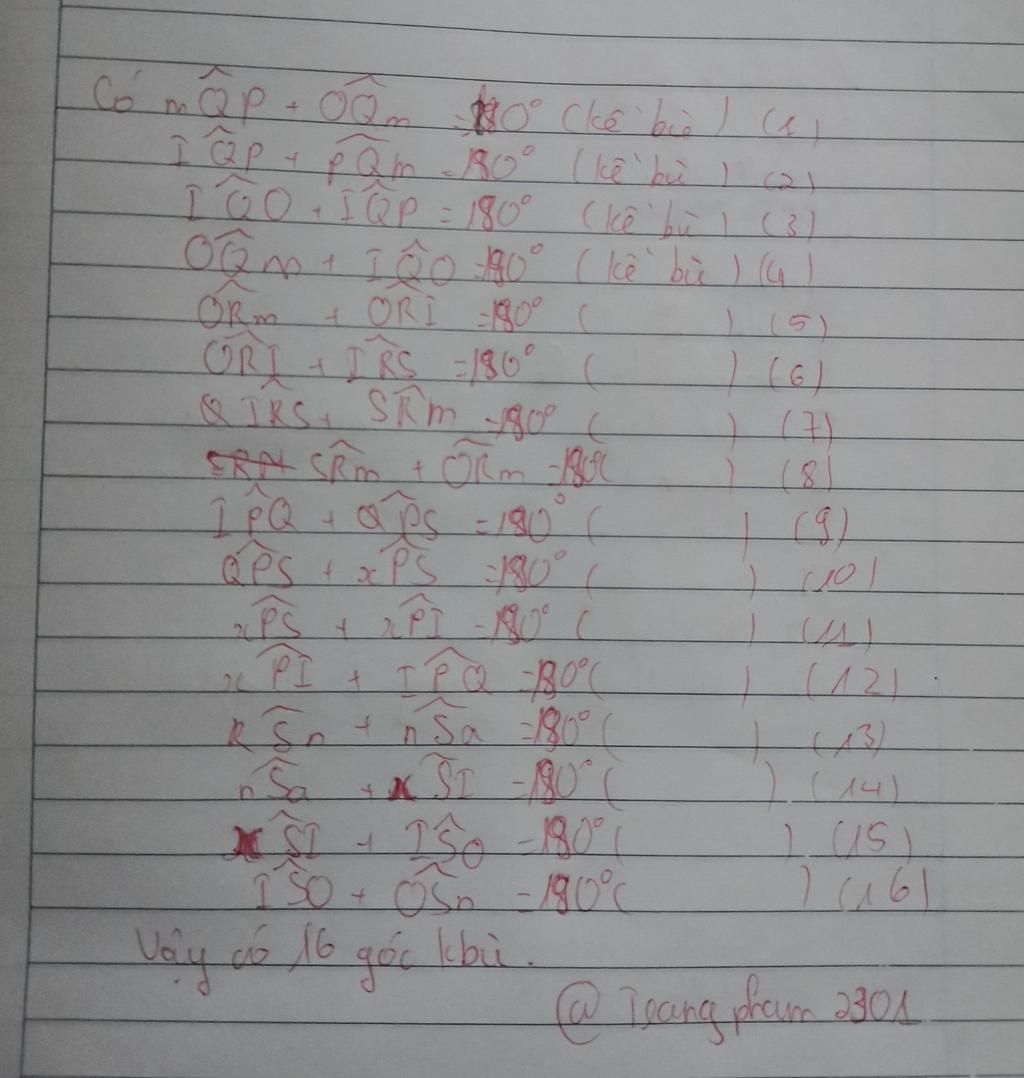 Có mQ̂P + OQ̂m = 180° (kề bù) (1)
IQ̂P + PQ̂m = 180° (kề bù) (2)
IQ̂O + IQ̂P = 180° (kề bù) (3)
OQ̂m + IQ̂O = 180° (kề bù) (4)
OR̂m + OR̂I = 180° ( ) (5)
OR̂I + IR̂S = 180° ( ) (6)
IR̂S + SR̂m = 180° ( ) (7)
SR̂m + OR̂m = 180° ( ) (8)
IP̂Q + QP̂S = 180° ( ) (9)
QP̂S + xP̂S = 180° ( ) (10)
xP̂S + xP̂I = 180° ( ) (11)
xP̂I + IP̂Q = 180° ( ) (12)
RŜn + nŜa = 180° ( ) (13)
nŜa + xŜI = 180° ( ) (14)
xŜI + IŜO = 180° ( ) (15)
IŜO + OŜn = 180° ( ) (16)
Vậy có 16 góc kbù.
@ Trang pham 2301